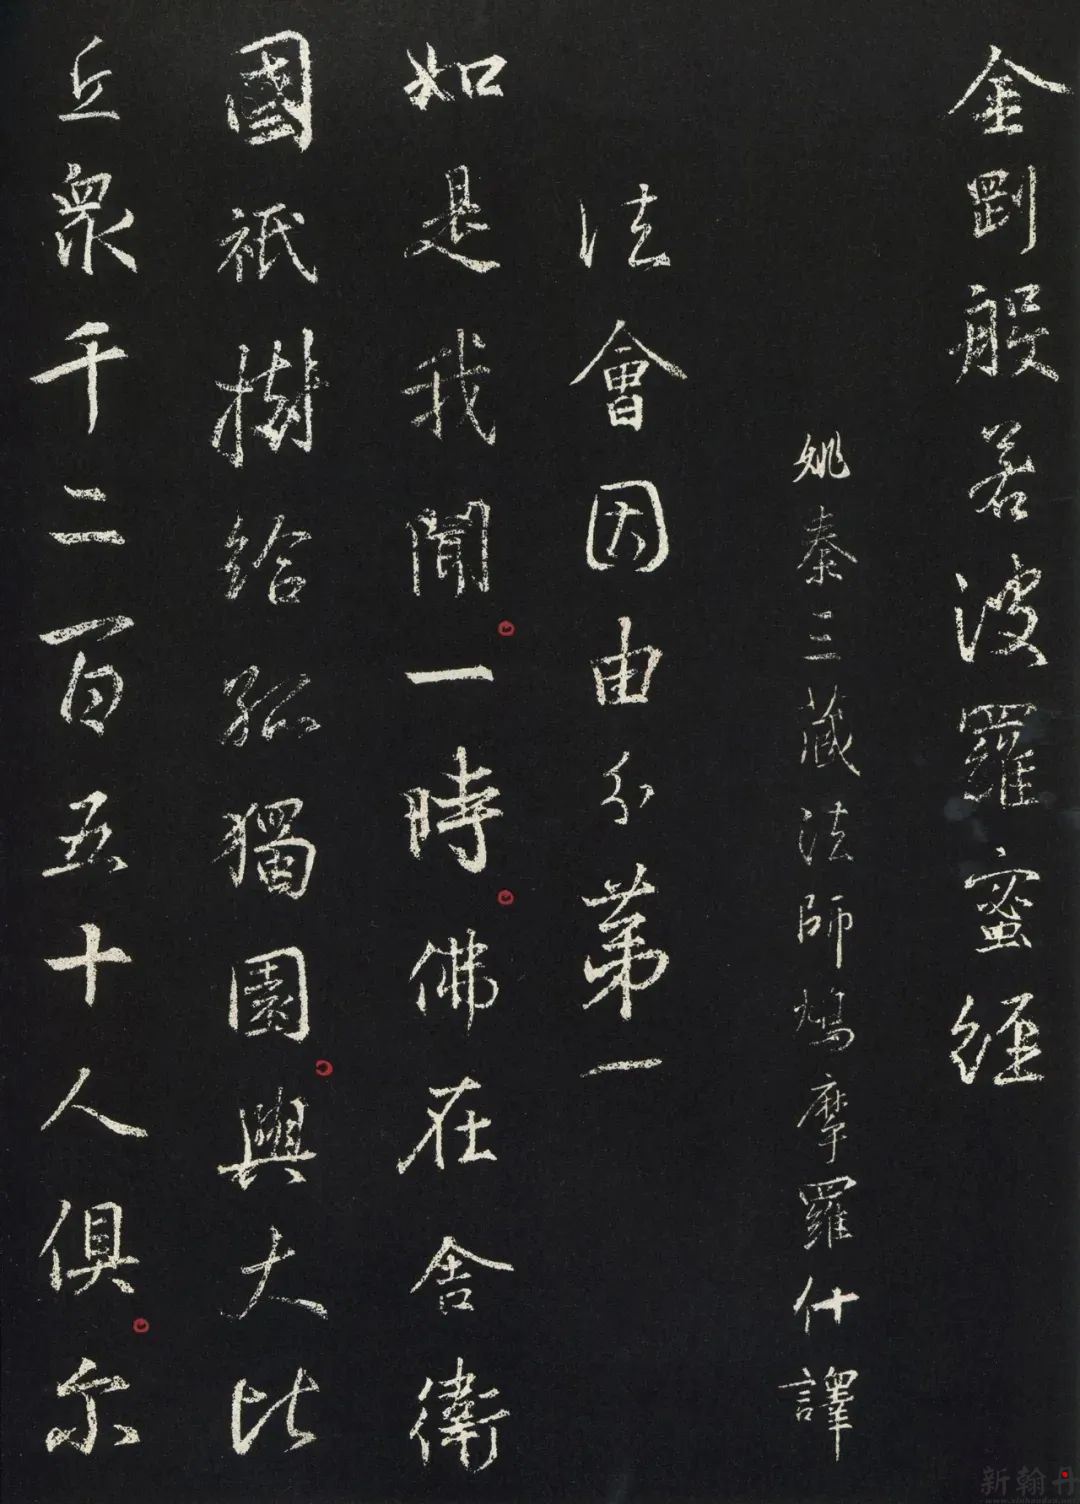 金剛般若波羅蜜經
姚秦三藏法師鳩摩羅什譯
法會因由分第一
如是我聞。一時。佛在舍衛
國祇樹給孤獨園。與大比
丘眾千二百五十人俱。尔
新翰丹